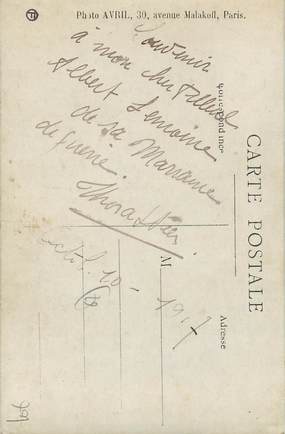 Photo AVRIL, 30, avenue Malakoff, Paris.
Souvenir
à mon cher filleul
Albert Lemoine
de sa Marraine
de guerre.
CARTE POSTALE
Correspondance
M
Adresse
10 - 1917